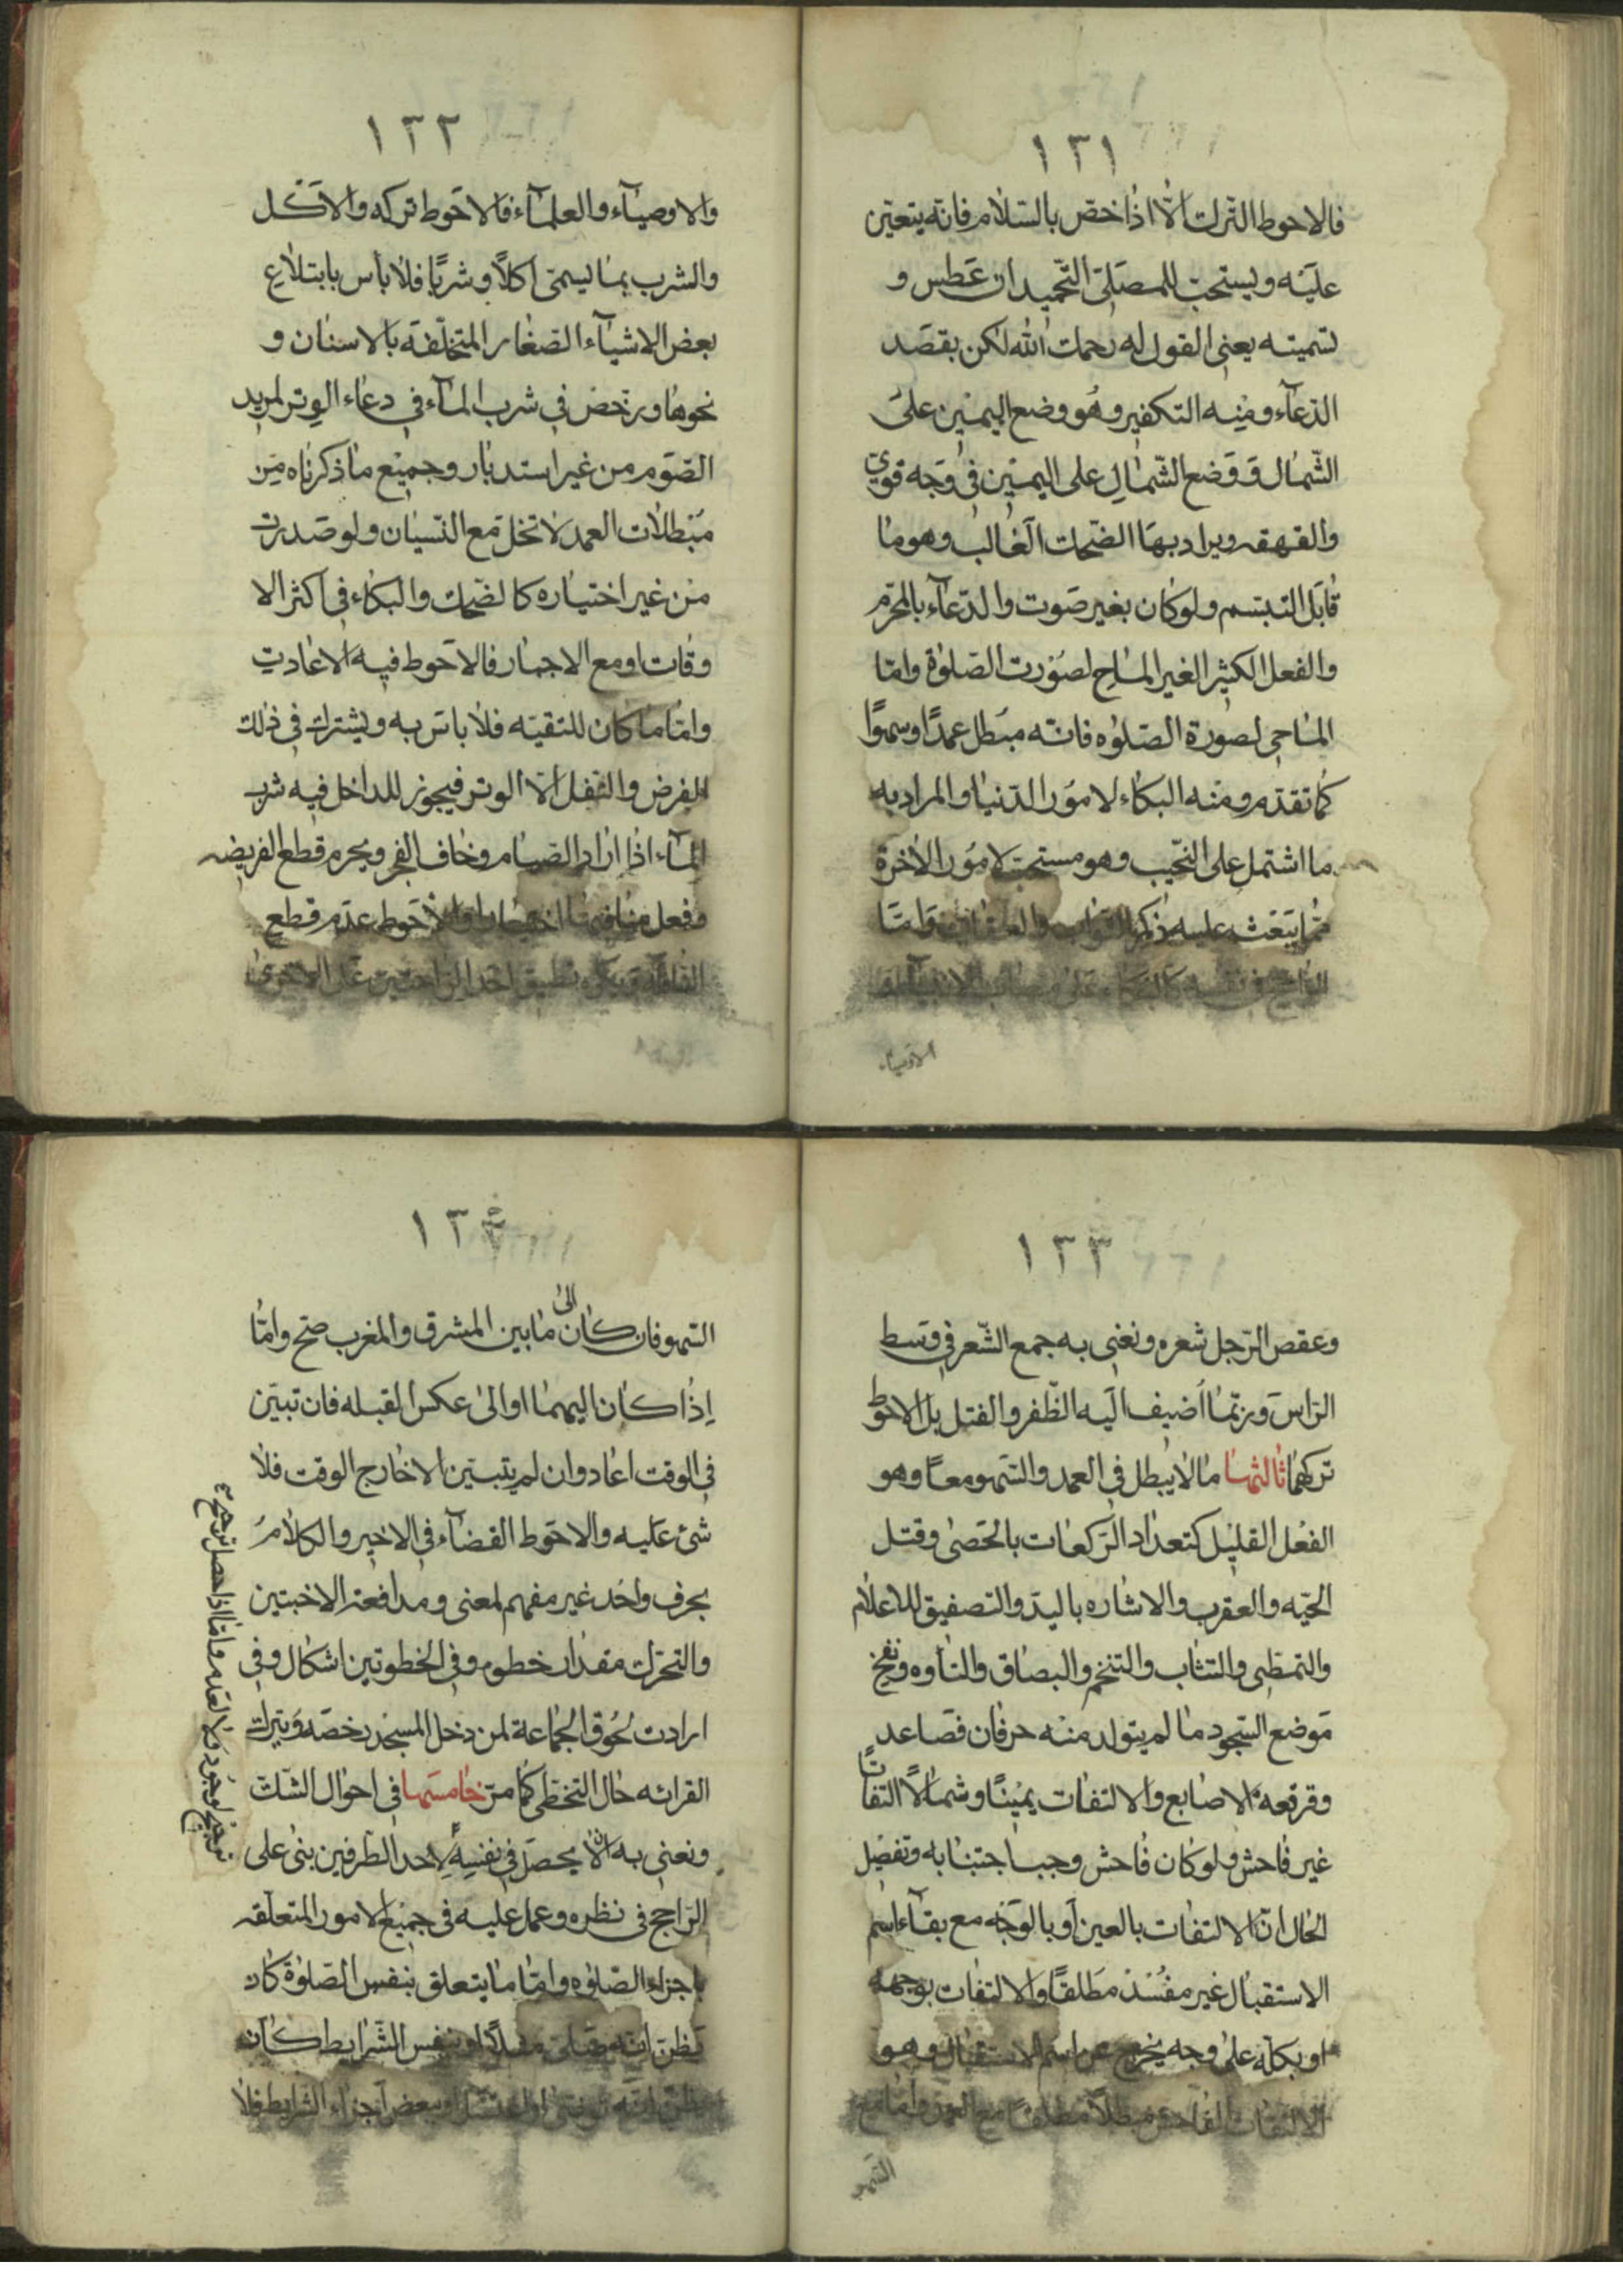 ١٢١
فالاحوط الترك الّا اذا خصّ بالسّلام فانّه يتعيّن
عليه ويستحبّ للمصلّى التّحميد ان عطس و
تسميته يعنى القول له رحمك الله لكن بقصد
الدّعآء ومنه التكفير وهو وضع اليمين على
الشّمال ووضع الشّمالِ على اليمين فى وجه قوىّ
والقهقهه ويراد بها الضّحك الغالب وهو ما
قابل التبسّم ولو كان بغير صوت والدّعآء بالمحرّم
والفعل الكثير الغير الماحِ لصورت الصّلوة وامّا
الماحى لصورة الصّلوه فانّه مبطل عمدًا وسهوًا
كما تقدّم ومنه البكاء لامور الدّنيا والمراد به
ما اشتمل على النّحيب وهو مستحبّ لامور الاخرة
ممّا يبعث عليه ذكر الثواب والعقاب وامّا
الاوصيآء
١٢٢
والاوصيآء والعلمآء فالاحوط تركه والاكل
والشرب بما يسمّى اكلاً وشربًا فلا بأس بابتلاع
بعض الاشيآء الصّغار المتخلّفة بالاسنان و
نحوها ويرخّص فى شرب المآء فى دعاء الوتر لمريد
الصّوم من غير استدبار وجميع ما ذكرناه من
مبطلات العمد لا تخل مع النّسيان ولو صدرت
من غير اختياره كالضحك والبكاء فى اكثر الا
وقات او مع الاجبار فالاحوط فيه الاعادت
وامّا ما كان للتقيّه فلا باس به ويشترك فى ذلك
الفرض والنّفل الّا الوتر فيجوز للداخل فيه شرب
المآء اذا اراد الصيام وخاف الفجر ويحرم قطع الفريضه
وفعل منافيها اختيارا والاحوط عدم قطع
النافلة ويكره تطبيق احد الراحتين على الاخرى
١٢٣
وعقص الرّجل شعره ونعنى به جمع الشّعر فى وسط
الرّاس وربّما اضيف اليه الظّفر والفتل بل الاحوط
تركهما ثالثها ما لا يبطل فى العمد والسّهو معًا وهو
الفعل القليل كتعداد الرّكعات بالحصى وقتل
الحيّه والعقرب والاشاره باليد والتصفيق للاعلام
والتمطّى والتثاب والتنخّم والبصاق والتأوه ونفخ
موضع السّجود ما لم يتولد منه حرفان فصاعد
وقرقعه الاصابع والالتفات يمينًا وشمالاً التفاتًا
غير فاحش ولو كان فاحش وجب اجتنابه وتفصيل
الحال انّ الالتفات بالعين او بالوجه مع بقآء اسم
الاستقبال غير مفسد مطلقًا والالتفات بوجهه
او بكلّه على وجه يخرج عن اسم الاستقبال وهو
الالتفات الفاحش مبطلاً مطلقًا مع العمد وامّا مع
السّهو
١٢٤
السّهو فان كان الى ما بين المشرق والمغرب صحّ وامّا
اِذا كان اليهما او الى عكس القبله فان تبيّن
فى الوقت اعاد وان لم يتبيّن الا خارج الوقت فلا
شئ عليه والاحوط القضآء فى الاخير والكلام
بحرف واحد غير مفهم لمعنى ومدافعة الاخبثين
والتحرّك مقدار خطوه وفى الخطوتين اشكال وفى
ارادت لحوق الجماعة لمن دخل المسجد رخصه ويترك
القرائه حال التخطّى كما مرّ خامسها فى احوال الشّك
ونعنى به الا يحصل فى نفسِهِ لاحد الطّرفين بنى على
الرّاجح فى نظره وعمل عليه فى جميع الامور المتعلّقه
باجزاء الصّلوه وامّا ما يتعلق بنفس الصّلوة كان
يظن انّه صلّى مثلاً او بنفس الشّرايط كان
يظن انّه توضّى او اغتسل او ببعض اجزاء الشرايط فلا
وامّا اذا حصل ترجيح